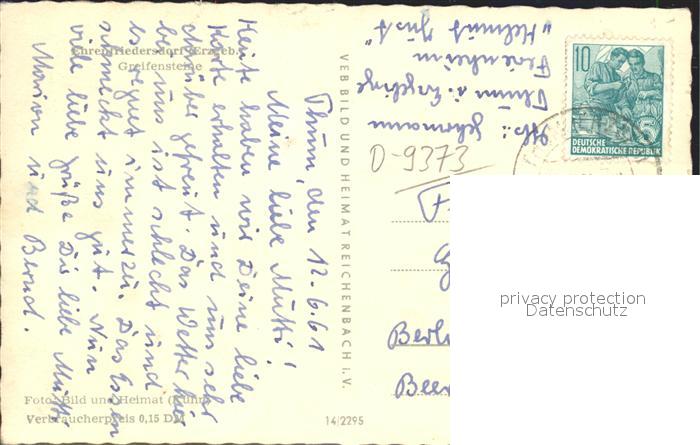 Ehrenfriedersdorf (Erzgeb.)
Greifensteine
Thum, den 12.6.61
Meine liebe Mutti!
Heute haben wir Deine liebe
Karte erhalten und uns sehr
darüber gefreut. Das Wetter hier
bei uns ist schlecht und
es regnet immerzu. Das Essen
schmeckt uns gut. Nun
viele liebe Grüße Dir liebe Mutti
Marion und Bernd.
Foto: Bild und Heimat (Kühn)
Verbraucherpreis 0,15 DM
14/2295
VEB BILD UND HEIMAT REICHENBACH I.V.
Abs.: Gehrmann
Thum i. Erzgebirge
Ferienheim
"Helmut Just"
D-9373
Berl
10
5
DEUTSCHE
DEMOKRATISCHE REPUBLIK
privacy protection
Datenschutz